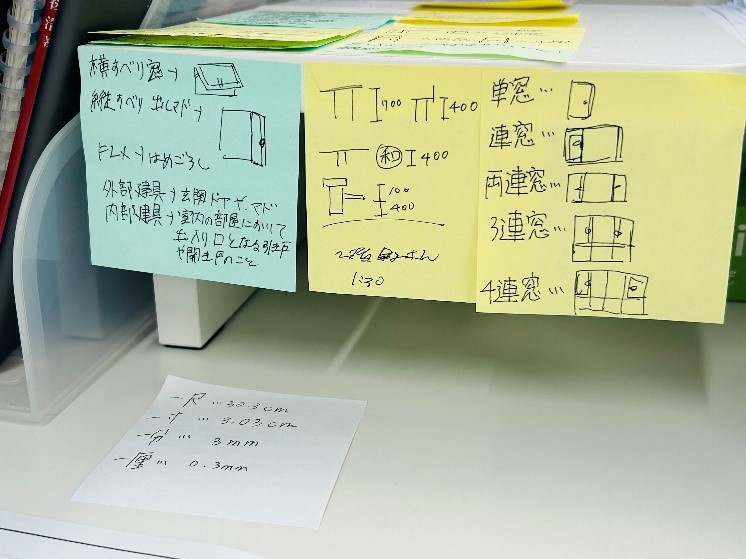 横すべり窓→
縦すべり出しマド→
FIX→はめごろし
外部建具→玄関ドアヤ、マド
内部建具→室内の部屋において
出入り口となる引き戸
や開き戸のこと
700
400
和
400
100
400
1:30
単窓…
連窓…
両連窓…
3連窓…
4連窓…
一尺…30.3cm
一寸…3.03cm
一分…3mm
一厘…0.3mm